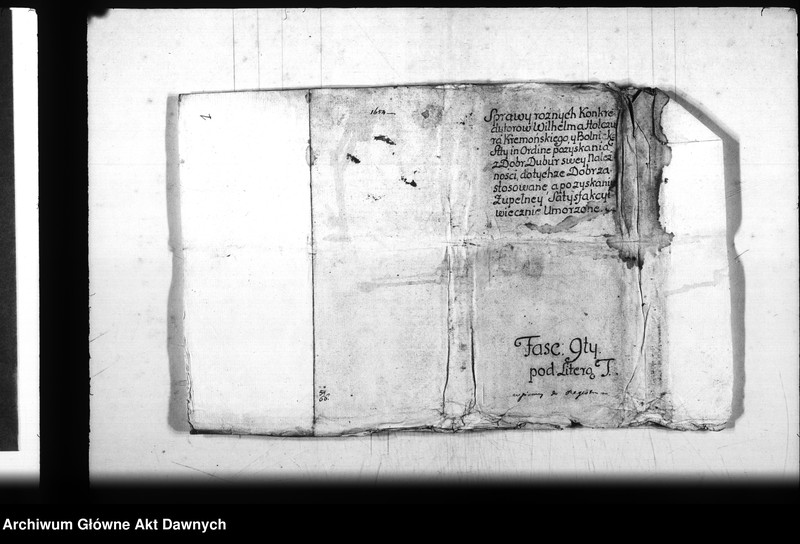 1
1654
Sprawy roznych Konkre
dytorow Wilhelma
Kremonskiego, y
Sty in Ordine pozyskania
z Dobr Dubur swey Nalez
nosci, do tychze Dobr za
stosowane, a po zyskaniu
Zupełney Satysfakcyi
wiecznie Umorzone.
Fasc. 9ty.
pod Literą T.
Archiwum Główne Akt Dawnych